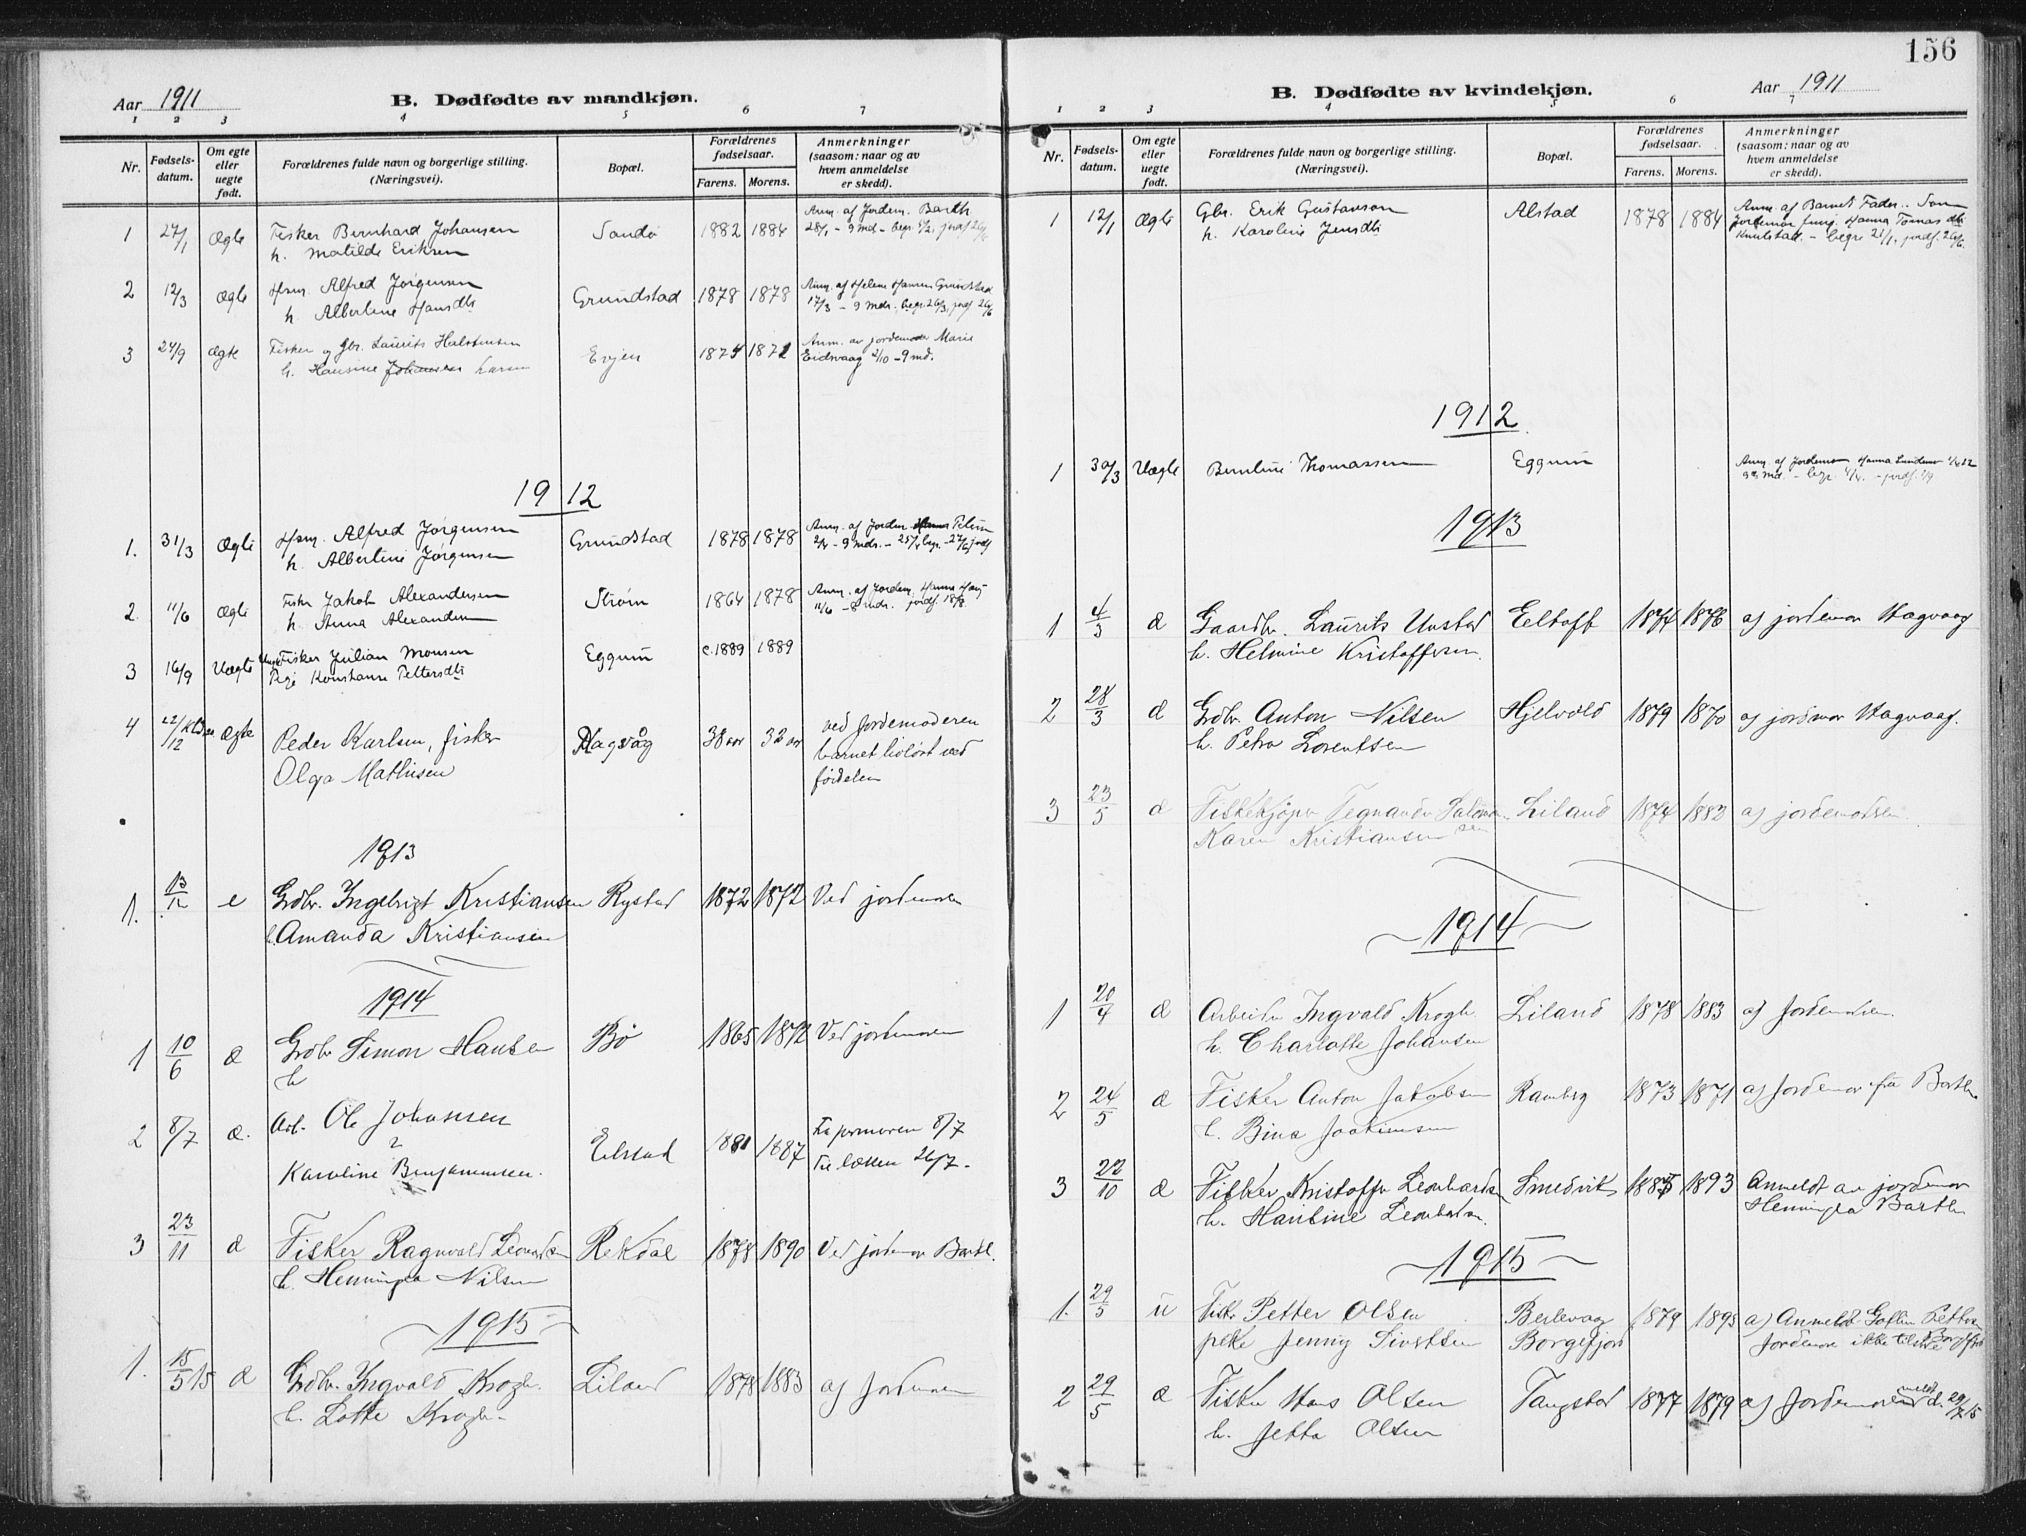 Aar 1911
B. Dødfødte av mandkjøn.
1 2 3 4 5 6 7
Nr. Fødsels-datum. Om egte eller uegte født. Forældrenes fulde navn og borgerlige stilling. (Næringsvei). Bopæl. Forældrenes fødselsaar. Farens. Morens. Anmerkninger (saasom: naar og av hvem anmeldelse er skedd).
1 27/1 Ægte Fisker Bernhard Johansen Sandø 1882 1884 Anm. af Jordem. Barth
h. Matilde Eriksen
2 12/3 Ægte Hsm. Alfred Jørgensen Grundstad 1878 1878 Anm. af Helene Hansen Grundstad
h. Albertine Hansdtr 17/3 - 9 mdr. begr. 26/3, jordf. 26/6
3 24/9 Ægte Fisker og Gbr. Laurits Halstensen Evjen 1874 1872 Anm. av jordemoder Marie
h. Hansine Johansen Larsen Eidsvaag 2/10 - 9 md.
1912
1. 31/3 Ægte Hsm. Alfred Jørgensen Grundstad 1878 1878 Anm. af Jordem.
h. Albertine Jørgensen 2/4 - 9 mdr. - 25/4 begr. - 27/6 jordf
2. 11/6 Ægte Fisker Jakob Alexandersen Strøm 1864 1878 Anm. af Jordem. Hanna
h. Anna Alexandersen 11/6 - 8 mdr. jordf. 18/8.
3 16/9 Uægte Fisker Julian Monsen Eggum c. 1889 1889
Pige Konstanse Pettersdtr
4 22/12 Ægte Peder Karlsen, fisker Hagvåg 38 aar 32 aar ved Jordemoderen
Olga Mathisen barnet livløst ved
fødselen
1913
1. 13/12 e Grdbr. Ingebrigt Kristiansen Rystad 1872 1872 Ved jordmoren
h. Amanda Kristiansen
1914
1 10/6 æ Grdbr Simon Hansen Bø 1865 1872 Ved jordmoren
h
2 8/7 æ. Arb. Ole Johansen Eelstad 1881 1887 Til jormoren 8/7
Karoline Benjaminsen. 26/7.
3 23/11 æ Fisker Ragnvald Leonardsen Rekdal 1878 1890 Ved jordmor Barth.
h. Henningea Nilsen
1915
1. 15/5 15 æ Grdbr. Ingvald Krogh. Liland 1878 1883 af Jordmoren
h. Lotte Krogh.
156
B. Dødfødte av kvindekjøn.
Aar 1911
1 2 3 4 5 6 7
Nr. Fødsels-datum. Om egte eller uegte født. Forældrenes fulde navn og borgerlige stilling. (Næringsvei). Bopæl. Forældrenes fødselsaar. Farens. Morens. Anmerkninger (saasom: naar og av hvem anmeldelse er skedd).
1 12/1 Ægte Gbr. Erik Gustavson Alstad 1878 1884 Anm. af Barnets Fader.
h. Karoline Jensdtr
1912
1 30/3 Uægte Berntine Thomassen Eggum Anm. af Jordemor Hanna
1913
1 4/3 æ Gaardbr. Laurits Unstad Eeltoft 1874 1876 af jordemor Hagvaag
h. Helmine Kristoffersen.
2 28/3 æ Grdbr. Anton Nilsen Hjelvold 1879 1870 af jordmor Hagvaag.
h. Petra Lorentsen
3 23/5 æ Fiskekjøper Tegnander Salomonsen Liland 1874 1883 af jordemoren.
Karen Kristiansen
1914
1 20/4 æ Arbeider Ingvald Krogh. Liland 1878 1883 af Jordemoren.
h. Charlotte Johansen
2 24/5 æ Fisker Anton Jakobsen Ramberg 1873 1871 af Jordemor fra Barth
h. Bina Joakimsen
3 22/10 æ Fisker Kristoffer Leonhardsen Smedvik 1885 1893 Anmeldt av jordemor
h. Hansine Leonhardsen. Henningea Barth
1915
1. 29/5 u Fisker Petter Olsen 1879 1895
pike Jenny Sivertsen Borgefjord Jordemor ikke tilstede
2 29/5 æ Fisker Hans Olsen Tangstad 1877 1879 af Jordemoren meldt d. 29/7 15
h. Jetta Olsen